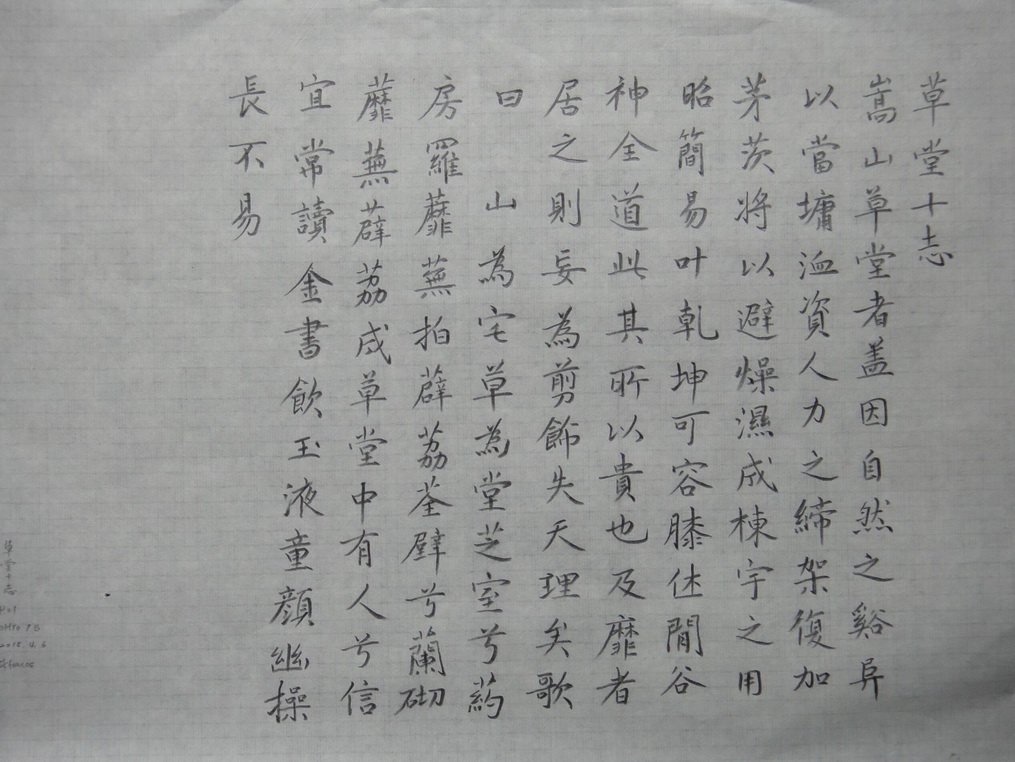 草堂十志
嵩山草堂者盖因自然之谿异
以當墉洫資人力之締架復加
茅茨將以避燥濕成棟宇之用
昭簡易叶乾坤可容膝休閒谷
神全道此其所以貴也及靡者
居之則妄為剪飾失天理矣歌
曰山為宅草為堂芝室兮葯
房羅蘼蕪拍薜荔荃壁兮蘭砌
蘼蕪薜荔成草堂中有人兮信
宜常讀金書飲玉液童顔幽操
長不易
草堂十志